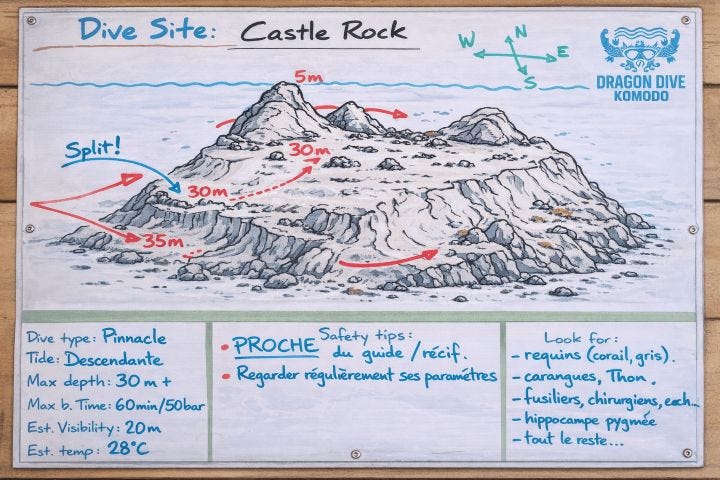 Dive Site: Castle Rock
N
W
E
S
DRAGON DIVE
KOMODO
5m
Split!
30m
30m
35m
Dive type: Pinnacle
Tide: Descendante
Max depth: 30 m +
Max b. Time: 60min/50bar
Est. Visibility: 20m
Est. temp: 28°C
Safety tips:
• PROCHE du guide / récif.
• Regarder régulièrement ses paramétres
Look for:
- requins (corail, gris).
- carangues, Thon.
- fusiliers, chirurgiens,
- hippocampe pygmée
- tout le reste...